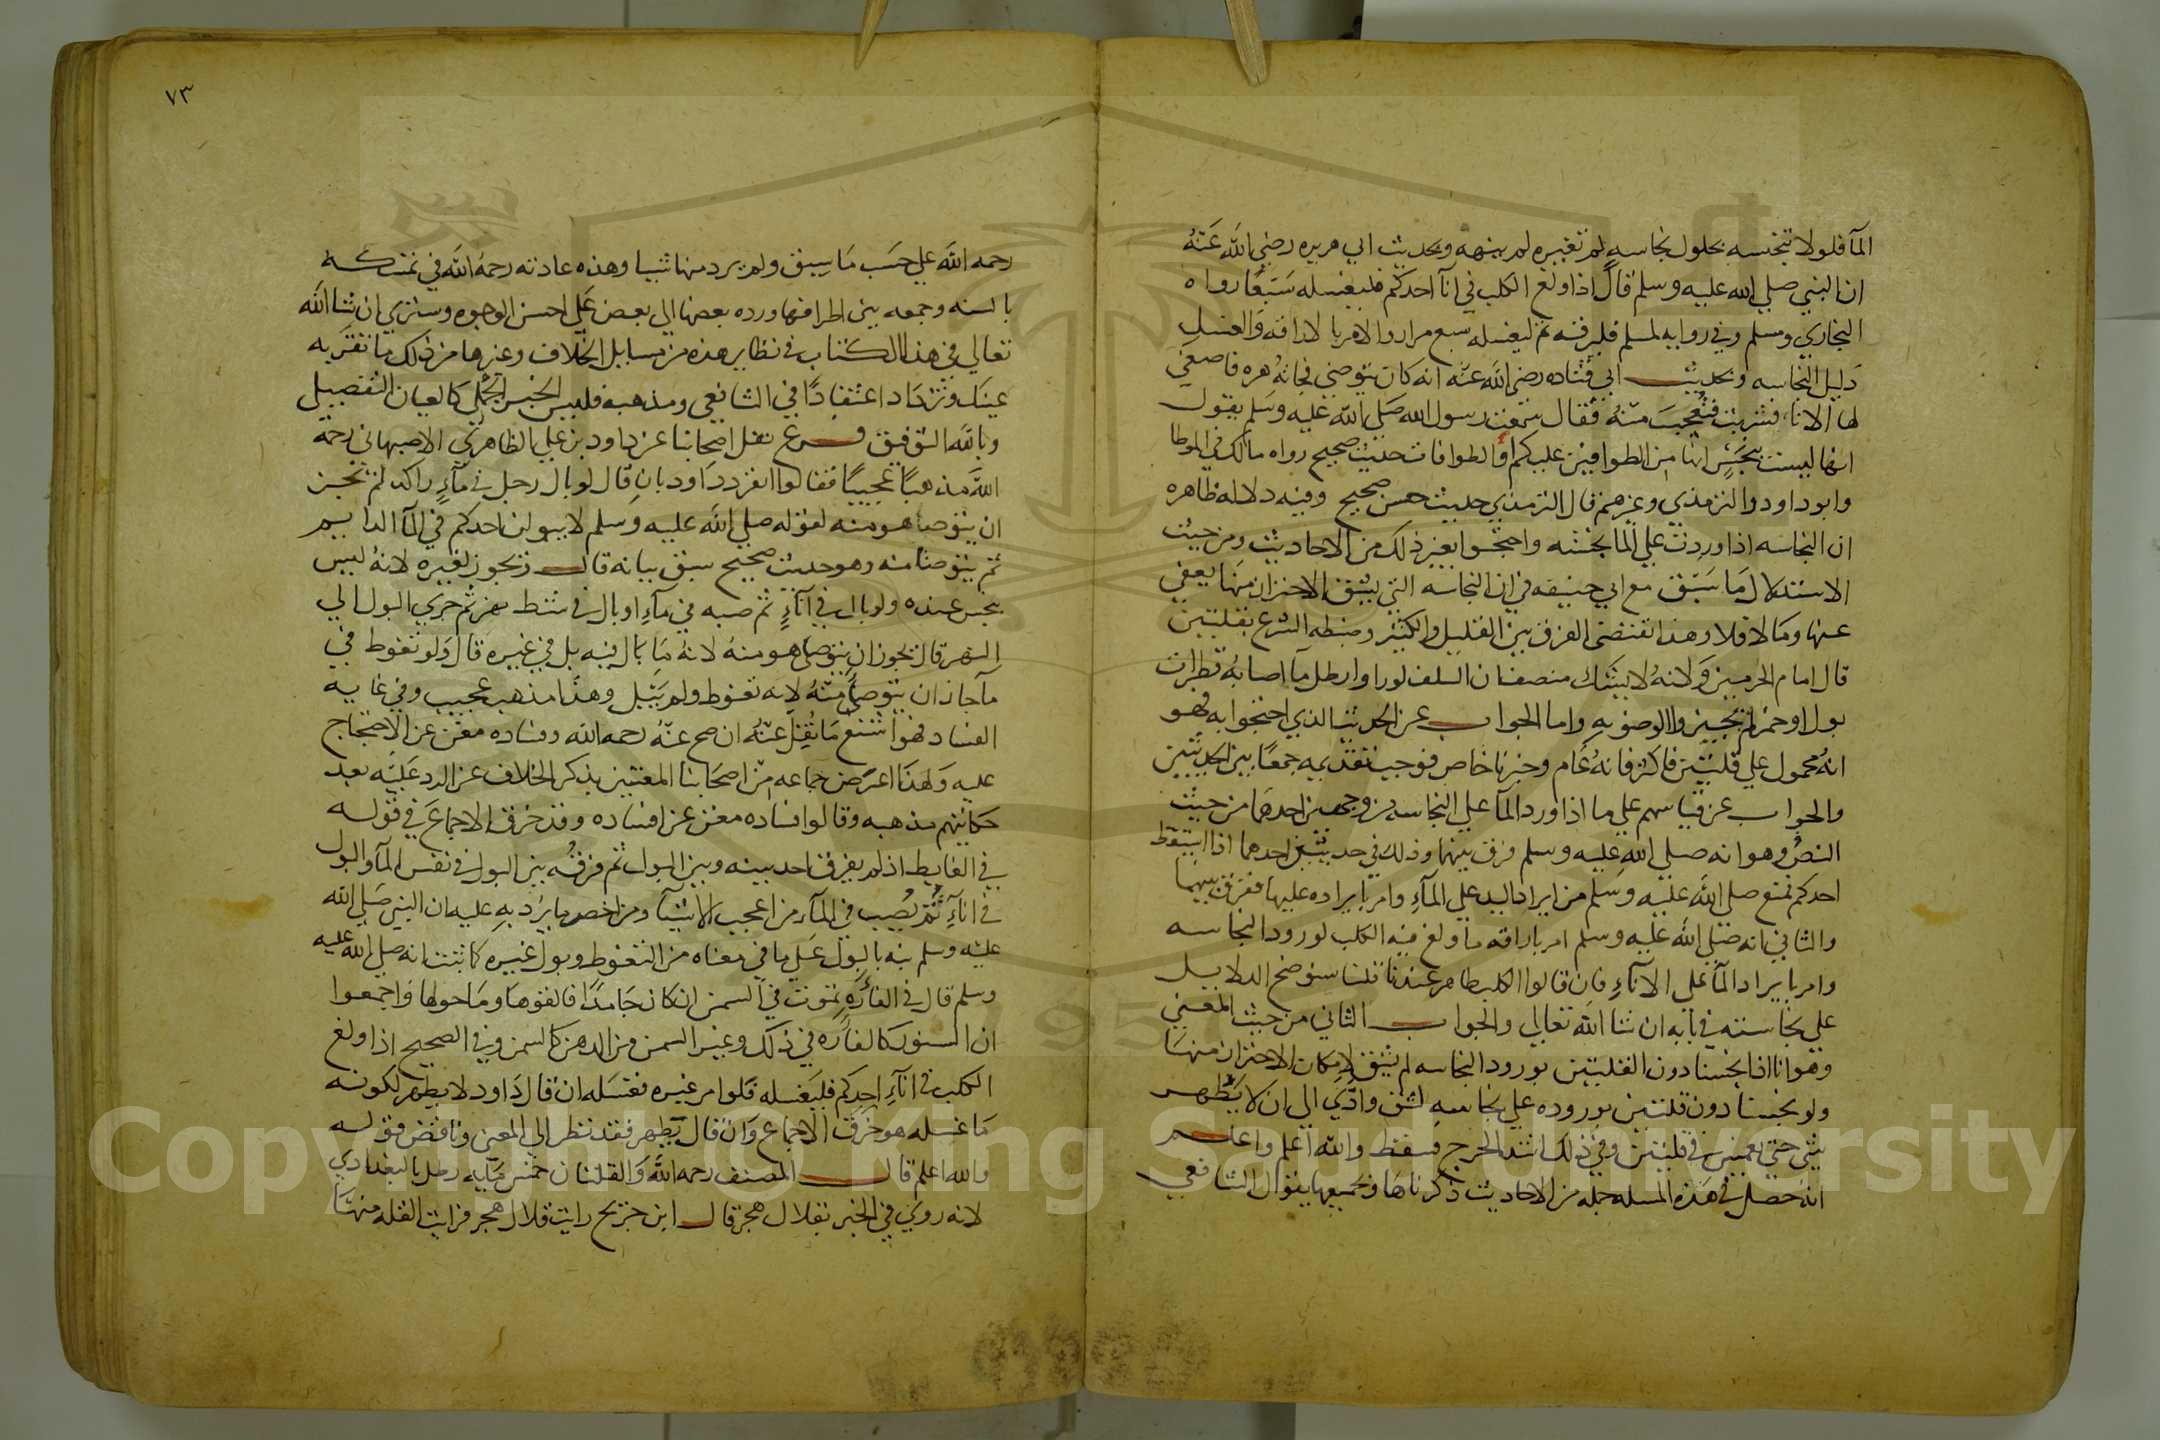 المآ فلولا تنجسه بحلول نجاسه لم تغيره لم ينهه وبحديث ابي هريره رضي الله عنه
ان النبي صلي الله عليه وسلم قال اذا ولغ الكلب في انآ احدكم فليغسله سبعا رواه
البخاري ومسلم وفي روايه لمسلم فليرقه ثم ليغسله سبع مرار والامر بالاراقه والغسل
دليل النجاسه وبحديث ابي قتاده رضي الله عنه انه كان يتوضي فجاته هره فاصغي
لها الانا فشربت فتعجب منه فقال سمعت رسول الله صلي الله عليه وسلم يقول
انها ليست بنجس انها من الطوافين عليكم أو الطوافات حديث صحيح رواه مالك في الموطا
وابو داود والترمذي وغيرهم قال الترمذي حديث حسن صحيح وفيه دلاله ظاهره
ان النجاسه اذا وردت علي المآ نجسته واحتجوا بغير ذلك من الاحاديث ومن حيث
الاستدلال ما سبق مع ابي حنيفه في ان النجاسه التي يشق الاحتراز منها يعفي
عنها وما لا فلا وهذا تقتضي الفرق بين القليل والكثير وضبطه الشرع بقلتين
قال امام الحرمين ولانه لا يشك منصف ان السلف لو راوا رطل مآ اصابه قطرات
بول او خمر لم يجيزوا الوضو به واما الجواب عن الحديث الذي احتجوا به فهو
انه محمول علي قلتين فاكثر فانه عام وخبرنا خاص فوجب تقديمه جمعا بين الحديثين
والجواب عن قياسهم علي ما اذا ورد المآ علي النجاسه من وجهين احدهما من حيث
النص وهو انه صلي الله عليه وسلم فرق بينهما وذلك في حديثين احدهما اذا استيقظ
احدكم نمنع صلي الله عليه وسلم من ايراد اليد علي المآء وامر بايراده عليها ففرق بينهما
والثاني انه صلي الله عليه وسلم امر باراقه ما ولغ فيه الكلب لورود النجاسه
وامر بايراد المآ علي الانآء فان قالوا الكلب طاهر عندنا قلنا سنوضح الدلايل
علي نجاسته في بابه ان شا الله تعالي والجواب الثاني من حيث المعني
وهو انا اذا نجسنا دون القلتين بورود النجاسه لم يشق لامكان الاحتراز منها
ولو نجسنا دون قلتين بوروده علي نجاسه لشق وادي الي ان لا يطهر
شي حتي يغمس في قلتين وفي ذلك اشد الحرج فسقط والله اعلم واعلم
انه حصل في هذه المسله جمله من الاحاديث ذكرناها وبجميعها يقول الشافعي
٧٣
رحمه الله علي حسب ما سبق ولم يرد منها شيا وهذه عادته رحمه الله في تمسكه
بالسنه وجمعه بين اطرافها ورده بعضها الي بعض علي احسن الوجوه وستري ان شا الله
تعالي في هذا الكتاب في نظاير هذه من مسايل الخلاف وغيرها من ذلك ما تقر به
عينك وتزداد اعتقادا في الشافعي ومذهبه فليس الخبر الجملي كالعيان التفصيل
وبالله التوفيق فرع نقل اصحابنا عن داود بن علي الظاهري الاصبهاني رحمه
الله مذهبا عجيبا فقالوا انفرد داود بان قال لو بال رجل في مآء راكد لم يجز
ان يتوضا هو منه لقوله صلي الله عليه وسلم لا يبولن احدكم في المآ الدايم
ثم يتوضا منه وهو حديث صحيح سبق بيانه قال ويجوز لغيره لانه ليس
بنجس عنده ولو بال في انآء ثم صبه في مآء او بال في شط نهر ثم جري البول الي
النهر قال يجوز ان يتوضا هو منه لانه ما بال فيه بل في غيره قال ولو تغوط في
مآ جاز ان يتوضا منه لانه تغوط ولم يبل وهذا مذهب عجيب وفي غايه
الفساد فهو اشنع ما نقل عنه ان صح عنه رحمه الله وفساده مغن عن الاحتجاج
عليه ولهذا اعرض جماعه من اصحابنا المعتنين بذكر الخلاف عن الرد عليه بعد
حكايتهم مذهبه وقالوا فساده مغن عن افساده وقد خرق الاجماع في قوله
في الغايط اذ لم يفرق احد بينه وبين البول ثم فرقه بين البول في نفس المآ والبول
في انآء ثم يصب في المآء من اعجب الاشيآ ومن اخصر ما يرد به عليه ان النبي صلي الله
عليه وسلم نبه بالبول علي ما في معناه من التغوط وبول غيره كما ثبت انه صلي الله عليه
وسلم قال في الفأره تموت في السمن ان كان جامدا فالقوها وما حولها واجمعوا
ان السنور كالفأره في ذلك وغير السمن من الدهن كالسمن وفي الصحيح اذا ولغ
الكلب في انآء احدكم فليغسله فلو امر غيره فغسله ان قال داود لا يطهر لكونه
ما غسله هو خرق الاجماع وان قال يطهر فقد نظر الي المعني وناقض قوله
والله اعلم قال المصنف رحمه الله والقلتان خمس مايه رطل بالبغدادي
لانه روي في الخبر بقلال هجر قال ابن جريج رايت قلال هجر فرايت القله منها
Copyright © King Saud University
1957